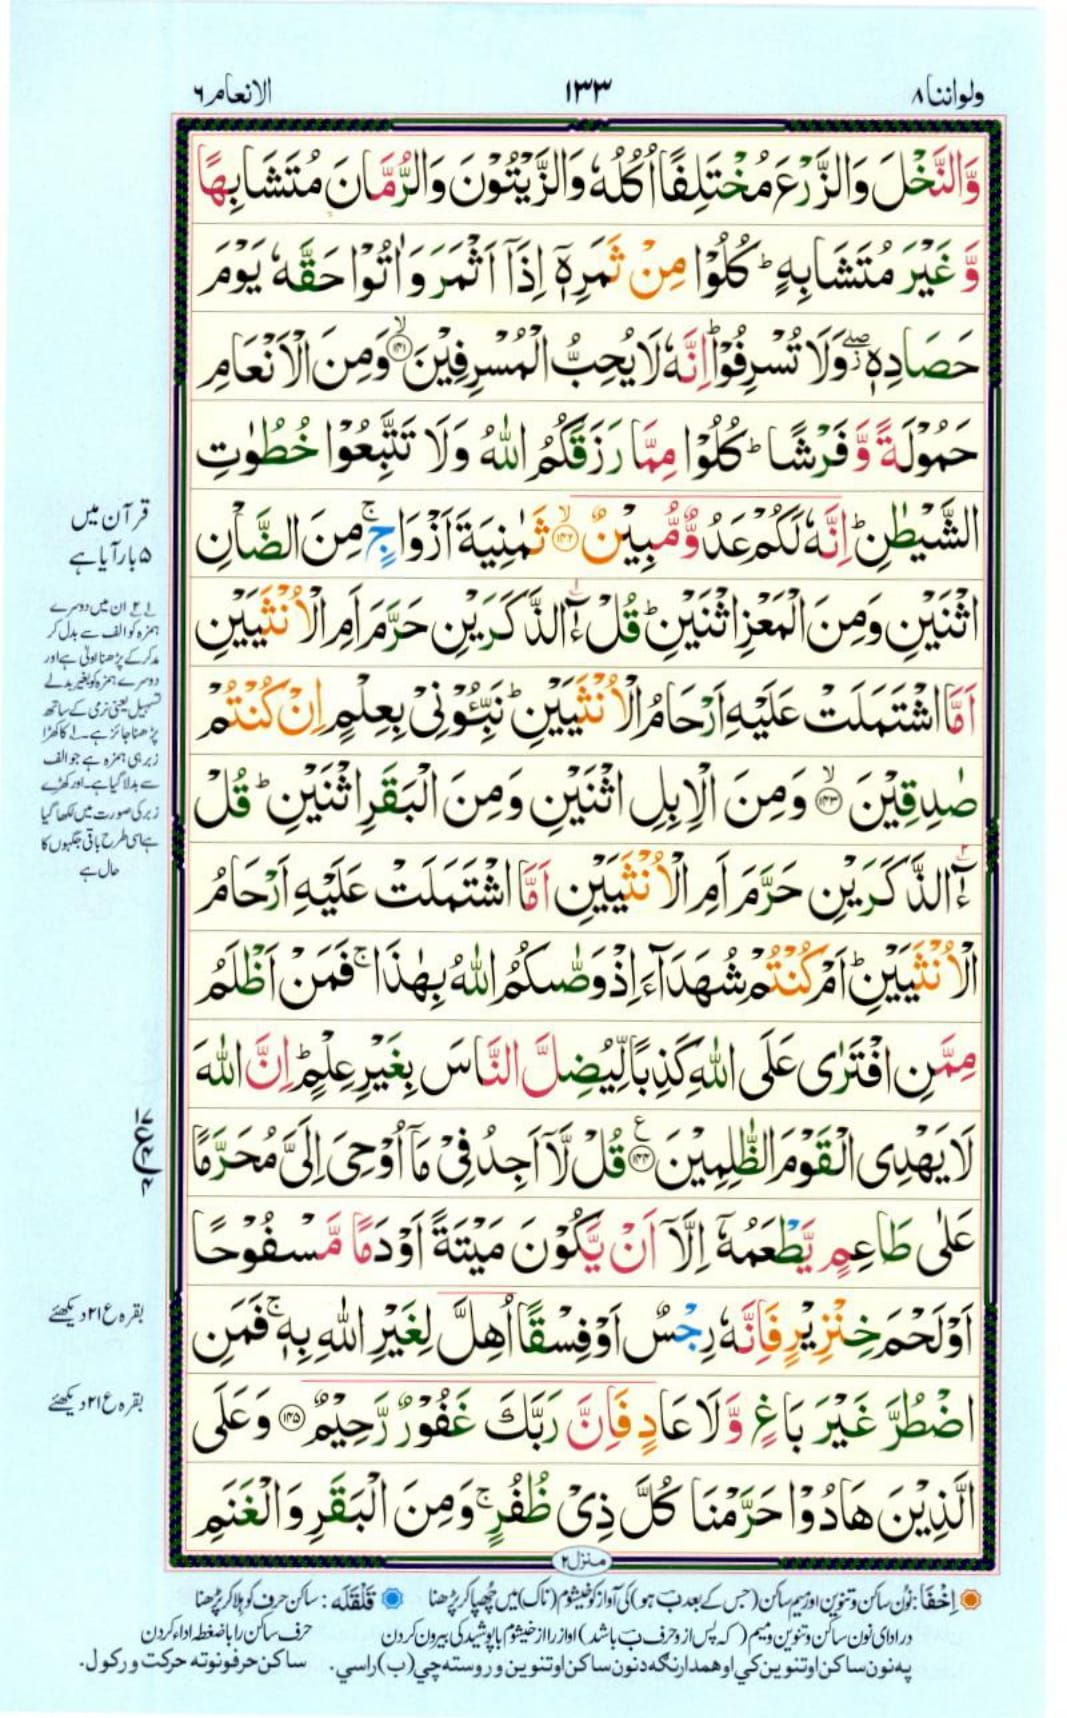 ولواننا ٨
١٣٣
الانعام ٦
وَّالنَّخْلَ وَالزَّرْعَ مُخْتَلِفًا اُكُلُهٗ وَالزَّيْتُوْنَ وَالرُّمَّانَ مُتَشَابِهًا
وَّ غَيْرَ مُتَشَابِهٍ ؕ كُلُوْا مِنْ ثَمَرِهٖۤ اِذَاۤ اَثْمَرَ وَ اٰتُوْا حَقَّهٗ يَوْمَ
حَصَادِهٖ ۖ٘ وَلَا تُسْرِفُوْا ؕ اِنَّهٗ لَا يُحِبُّ الْمُسْرِفِيْنَ ۙ﴿۱۴۱﴾ وَمِنَ الْاَنْعَامِ
حَمُوْلَةً وَّ فَرْشًا ؕ كُلُوْا مِمَّا رَزَقَكُمُ اللّٰهُ وَلَا تَتَّبِعُوْا خُطُوٰتِ
الشَّيْطٰنِ ؕ اِنَّهٗ لَكُمْ عَدُوٌّ مُّبِيْنٌ ۙ﴿۱۴۲﴾ ثَمٰنِيَةَ اَزْوَاجٍ ۚ مِنَ الضَّاْنِ
اثْنَيْنِ وَمِنَ الْمَعْزِ اثْنَيْنِ ؕ قُلْ ءٰٓالذَّكَرَيْنِ حَرَّمَ اَمِ الْاُنْثَيَيْنِ
اَمَّا اشْتَمَلَتْ عَلَيْهِ اَرْحَامُ الْاُنْثَيَيْنِ ؕ نَبِّـُٔوْنِيْ بِعِلْمٍ اِنْ كُنْتُمْ
صٰدِقِيْنَ ۙ﴿۱۴۳﴾ وَمِنَ الْاِبِلِ اثْنَيْنِ وَمِنَ الْبَقَرِ اثْنَيْنِ ؕ قُلْ
ءٰٓالذَّكَرَيْنِ حَرَّمَ اَمِ الْاُنْثَيَيْنِ اَمَّا اشْتَمَلَتْ عَلَيْهِ اَرْحَامُ
الْاُنْثَيَيْنِ ؕ اَمْ كُنْتُمْ شُهَدَآءَ اِذْ وَصّٰىكُمُ اللّٰهُ بِهٰذَا ۚ فَمَنْ اَظْلَمُ
مِمَّنِ افْتَرٰى عَلَى اللّٰهِ كَذِبًا لِّيُضِلَّ النَّاسَ بِغَيْرِ عِلْمٍ ؕ اِنَّ اللّٰهَ
لَا يَهْدِى الْقَوْمَ الظّٰلِمِيْنَ ﴿۱۴۴﴾ قُلْ لَّاۤ اَجِدُ فِيْ مَاۤ اُوْحِيَ اِلَيَّ مُحَرَّمًا
عَلٰى طَاعِمٍ يَّطْعَمُهٗۤ اِلَّاۤ اَنْ يَّكُوْنَ مَيْتَةً اَوْ دَمًا مَّسْفُوْحًا
اَوْ لَحْمَ خِنْزِيْرٍ فَاِنَّهٗ رِجْسٌ اَوْ فِسْقًا اُهِلَّ لِغَيْرِ اللّٰهِ بِهٖ ۚ فَمَنِ
اضْطُرَّ غَيْرَ بَاغٍ وَّ لَا عَادٍ فَاِنَّ رَبَّكَ غَفُوْرٌ رَّحِيْمٌ ﴿۱۴۵﴾ وَ عَلَى
الَّذِيْنَ هَادُوْا حَرَّمْنَا كُلَّ ذِيْ ظُفُرٍ ۚ وَمِنَ الْبَقَرِ وَالْغَنَمِ
قرآن میں
۵ بار آیا ہے
۱، ۲ ان میں دوسرے
ہمزہ کو الف سے بدل کر
مد کر کے پڑھنا اولٰی ہے اور
دوسرے ہمزہ کو بغیر بدلے
تسہیل یعنی نرمی کے ساتھ
پڑھنا جائز ہے۔ ا کا کھڑا
زبر ہی ہمزہ ہے جو الف
سے بدلا گیا ہے۔ اور کھڑے
زبر کی صورت میں لکھا گیا
ہے اسی طرح باقی جگہوں کا
حال ہے
بقرہ ع ۲۱ دیکھئے
بقرہ ع ۲۱ دیکھئے
منزل ۲
اِخْفَا: نون ساکن و تنوین اور میم ساکن (جس کے بعد ب ہو) کی آواز کو خیشوم (ناک) میں چھپا کر پڑھنا
قَلْقَلَه: ساکن حرف کو ہلا کر پڑھنا
در ادای نون ساکن و تنوین و میم (که پس از و حرف ب باشد) آواز را از خیشوم با پوشیدگی بیرون کردن
حرف ساکن را با ضغطه اداء کردن
په نون ساکن او تنوین کي او همدارنګه د نون ساکن او تنوین و روسته چي (ب) راسي.
ساکن حرفونو ته حرکت ورکول.